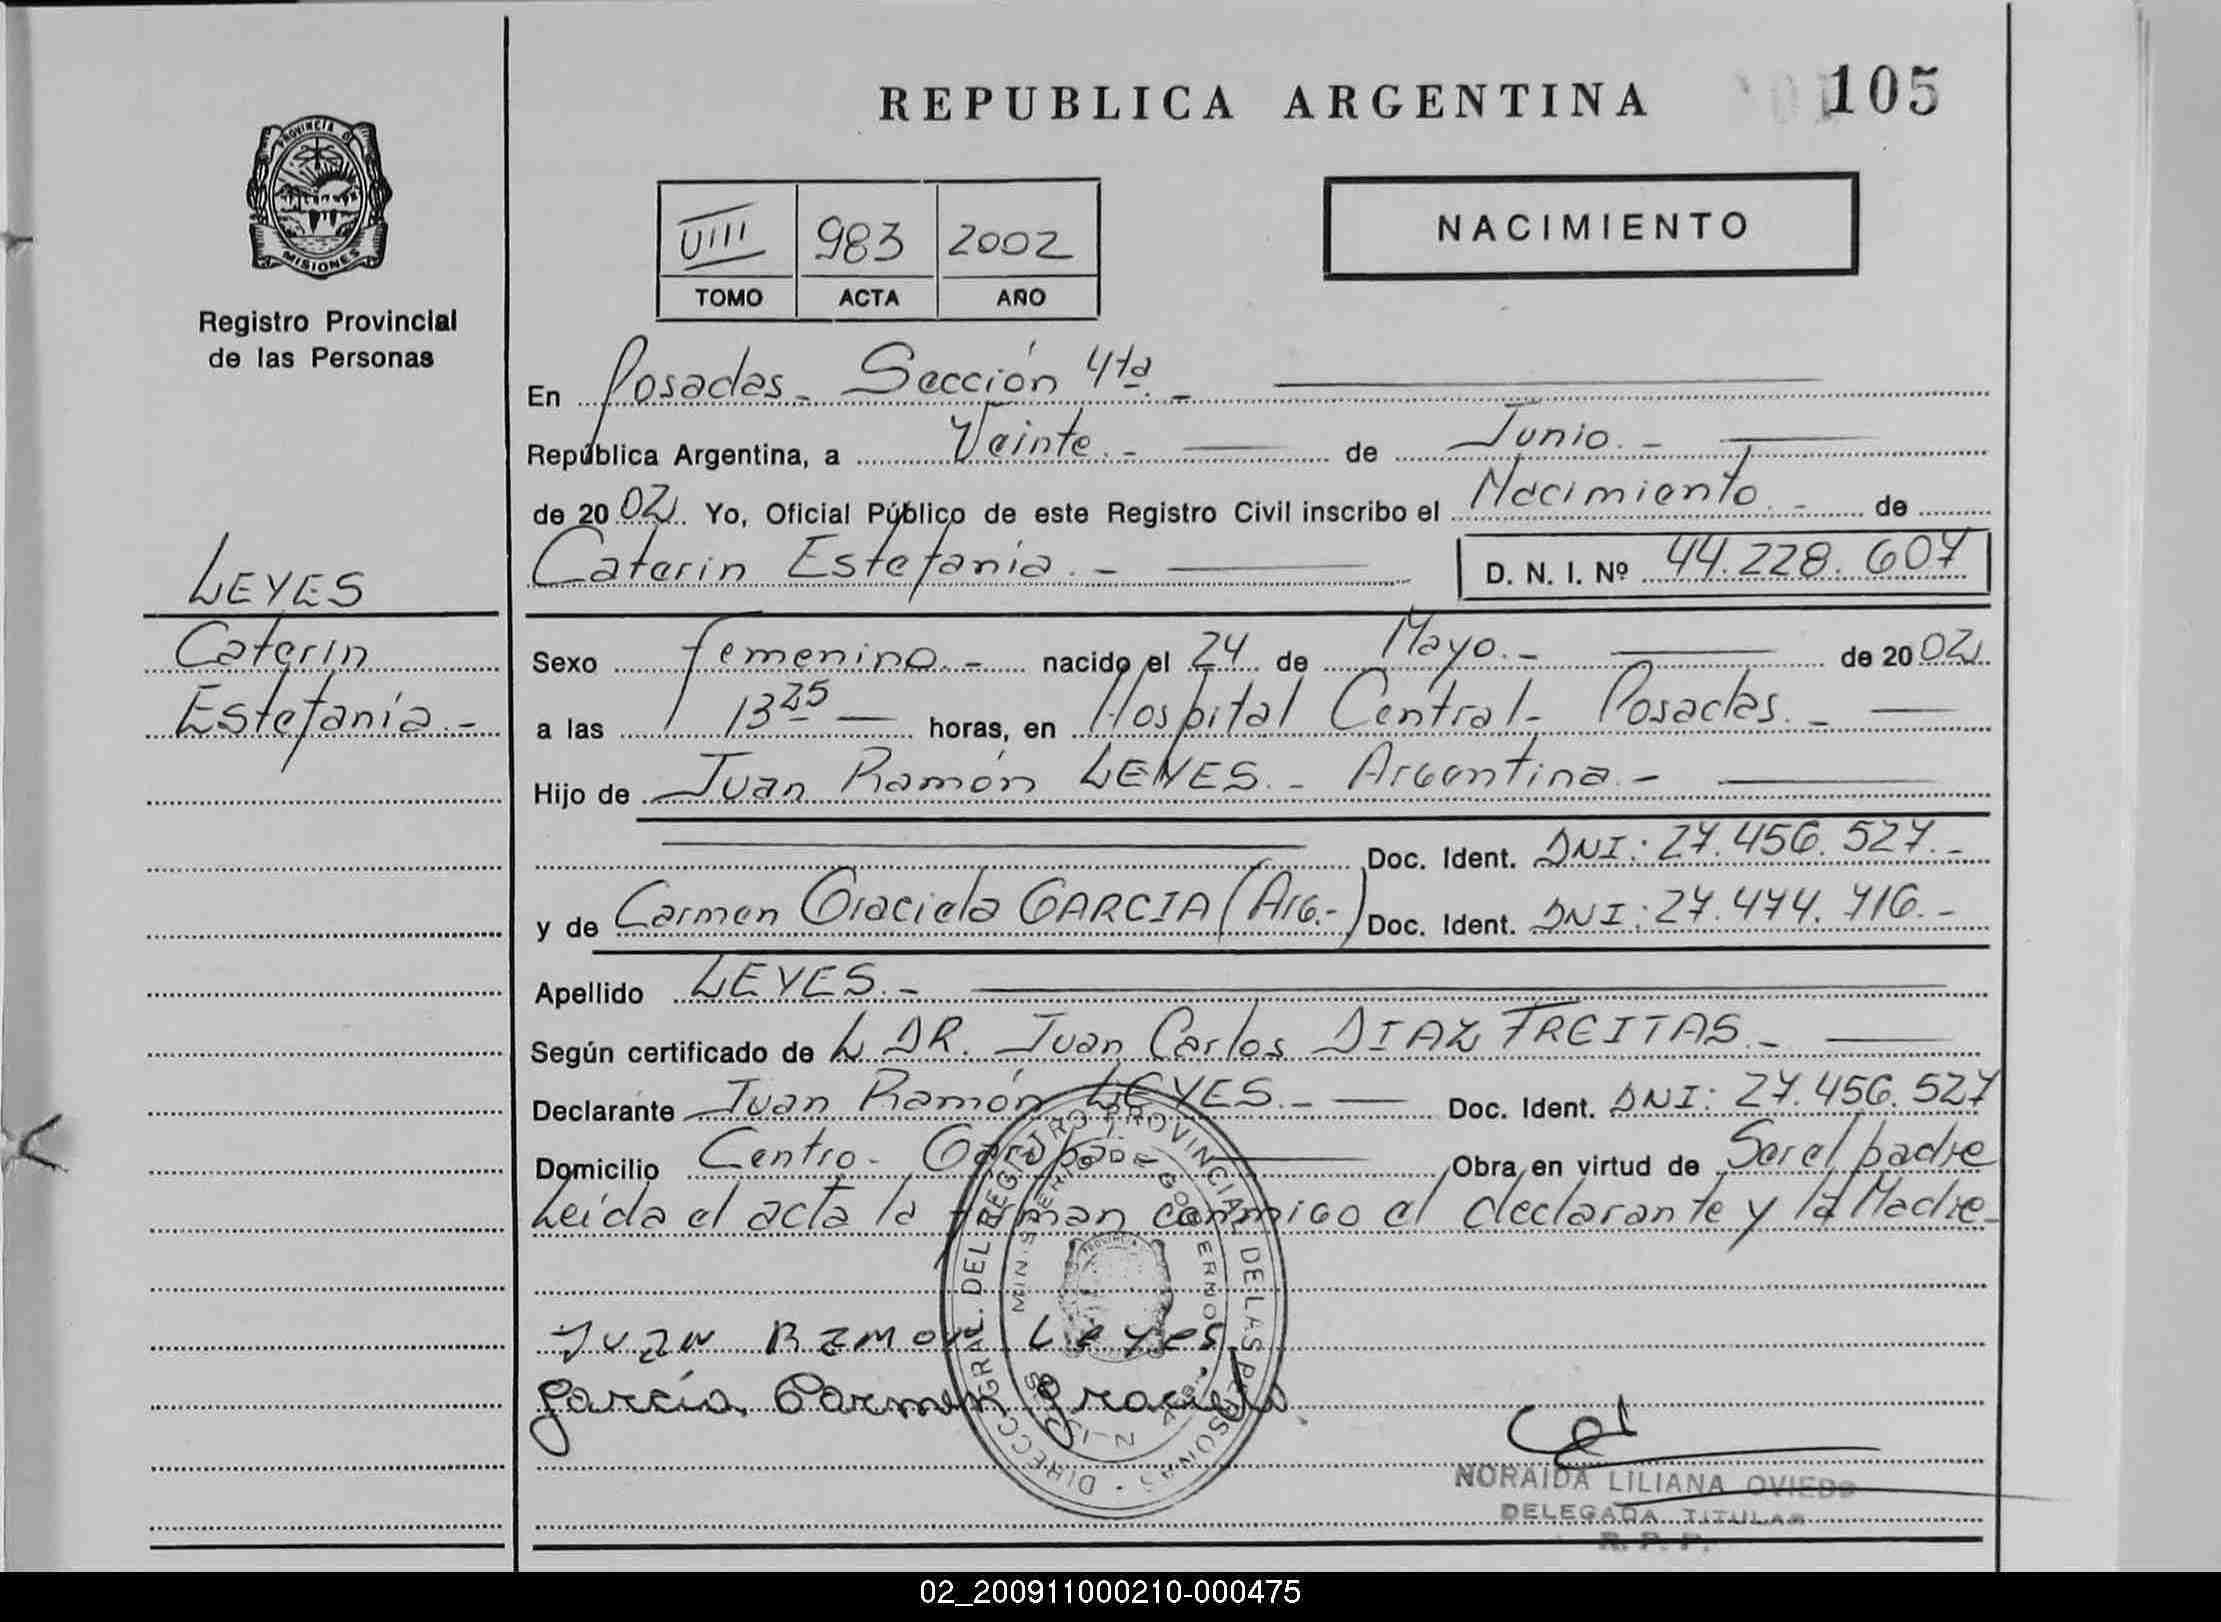 REPUBLICA ARGENTINA
105
PROVINCIA DE
MISIONES
Registro Provincial
de las Personas
VIII 983 2002
TOMO ACTA AÑO
NACIMIENTO
En Posadas - Sección 4ta. -
República Argentina, a Veinte. - de Junio. -
de 2002. Yo, Oficial Público de este Registro Civil inscribo el Nacimiento. - de
Caterin Estefanía. - D. N. I. Nº 44.228.607
LEYES
Caterin
Estefanía. -
Sexo femenino. - nacido el 24 de Mayo. - de 2002
a las 13 25 horas, en Hospital Central - Posadas. -
Hijo de Juan Ramón LEYES. - Argentina. -
Doc. Ident. DNI: 27.456.527. -
y de Carmen Graciela GARCIA (Arg.-) Doc. Ident. DNI: 27.474.716. -
Apellido LEYES. -
Según certificado de L DR. Juan Carlos DIAZ FREITAS. -
Declarante Juan Ramón LEYES. - Doc. Ident. DNI: 27.456.527
Domicilio Centro - Garupá. - Obra en virtud de Ser el padre
Leída el acta la firman conmigo el declarante y la Madre -
Juan Ramon Leyes
García Carmen Graciela
DIRECC. GRAL. DEL REGISTRO PROVINCIAL DE LAS PERSONAS
MINISTERIO DE GOBIERNO
NORAIDA LILIANA OVIEDO
DELEGADA TITULAR
R. P. P.
02_200911000210-000475